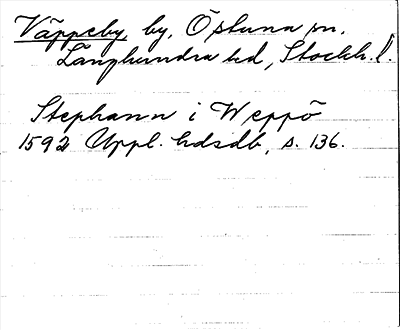 Väppeby, by, Östuna sn.
Långhundra hd, Stockh. l.
Stephann i Weppö
1592 Uppl. hdsdb, s. 136.